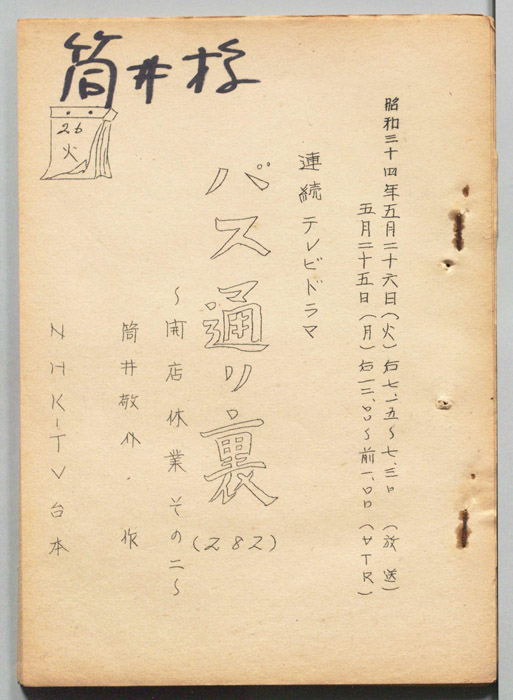 筒井様
26
火
昭和三十四年五月二十六日(火)后七.一五〜七.三〇 (放送)
五月二十五日(月)后一二.〇〇〜前一.〇〇 (VTR)
連続テレビドラマ
バス通り裏
(282)
〜開店休業 その二〜
筒井敬介・作
NHK-TV台本